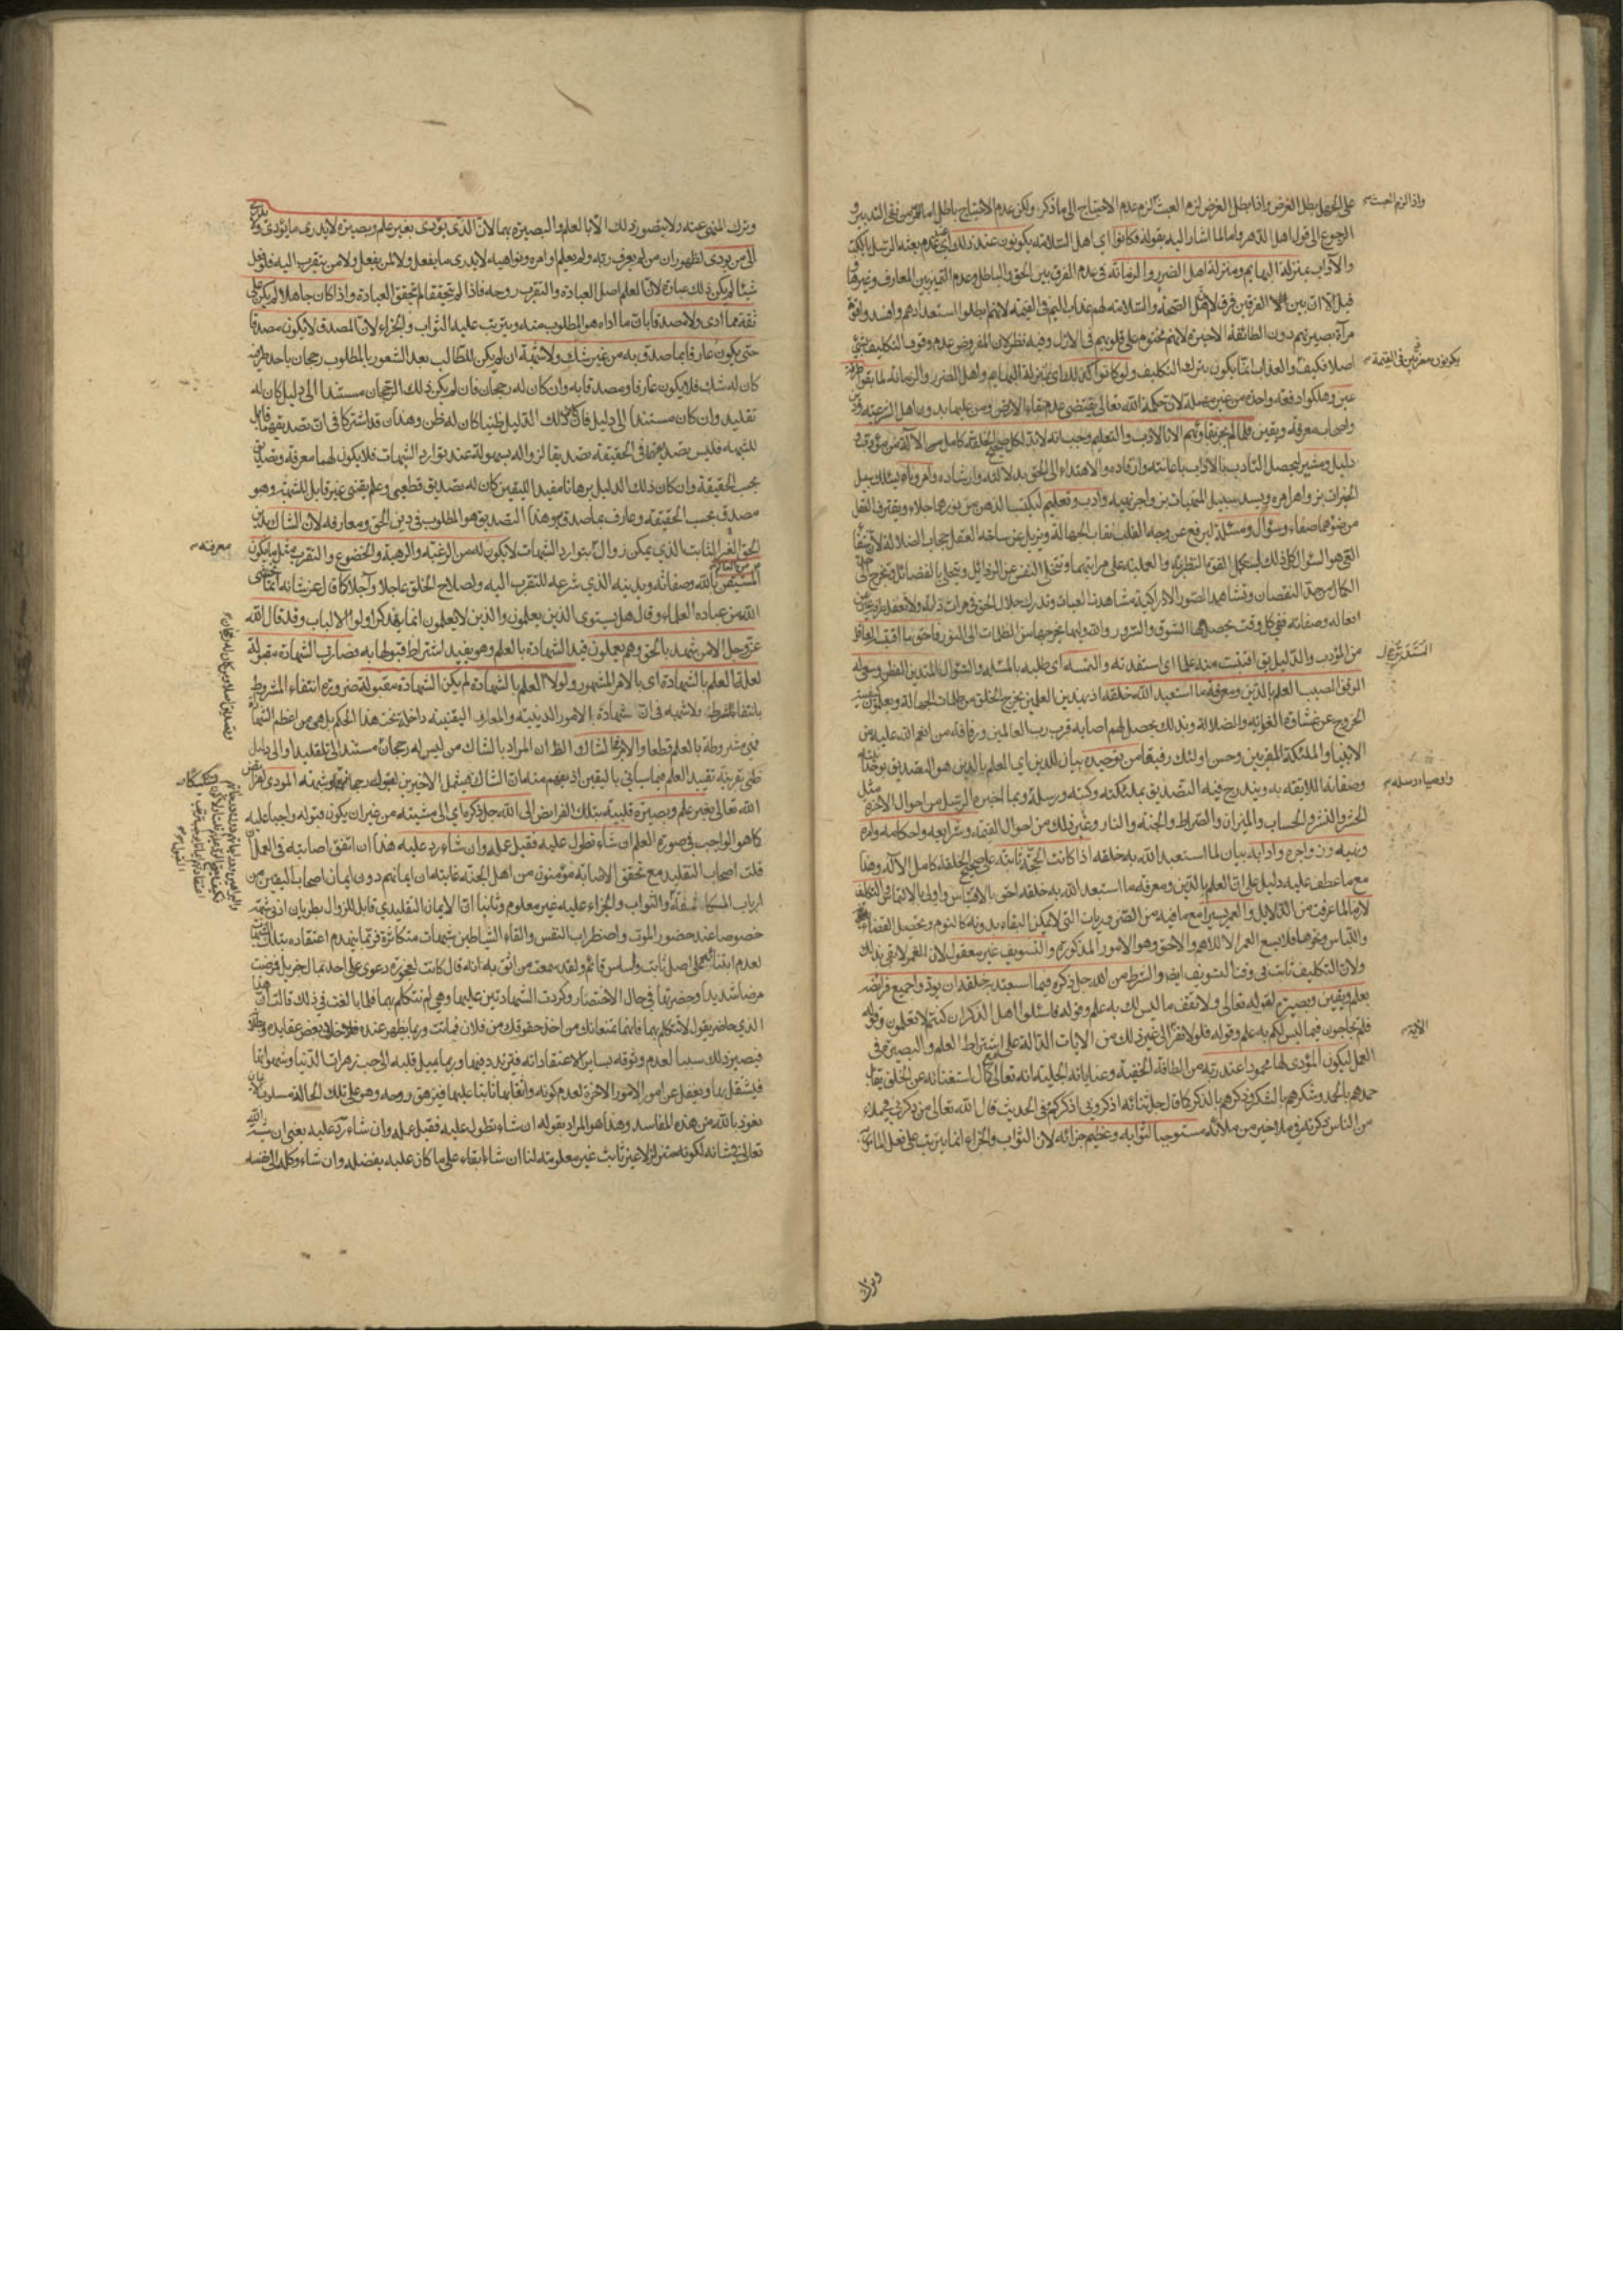 على الجهل بطل الغرض واذا بطل الغرض لزم العبث لزم عدم الاحتياج الى ما ذكر ولكن عدم الاحتياج باطل اما من نفى التدبير و
الرجوع الى قول اهل الدهر واما لما اشار اليه بقوله فكانوا اى اهل السلامة يكونون عند ذلك اى عند عدم بعثة الرسل بالكتب
والآداب بمنزلة البهايم ومنزلة اهل الضرر والزمانة فى عدم الفرق بين الحق والباطل وعدم التميز بين المعارف وغيرها
قيل الا ان بين الفريقين فرق لاهل الصحة والسلامة لهم عذاب اليم فى القيمة لانهم ابطلوا استعدادهم وافسدوا قوة
مرآة بصيرتهم دون الطائفة الاخيرة لانهم مختوم على قلوبهم فى الازل وفيه نظر لان المفروض عدم وقوع التكليف بشئ
اصلا فكيف والعذاب انما يكون بترك التكليف ولو كانوا كذلك اى بمنزلة البهايم واهل الضرر والزمانة لما بقوا طرفة
عين وهلكوا دفعة واحدة من غير مهلة لان حكمة الله تعالى يقتضى عدم بقاء الارض ومن عليها بدون اهل الشرعية
واصحاب معرفة ويقين فلما لم يجز بقاؤهم الا بالادب والتعليم وجب انه لا بد لكل صحيح الخلقة كامل الآلة من مؤدب و
دليل ومشير ليحصل التأدب بالآداب باعانته وارشاده والاهتداء الى الحق بدلالته وارشاده وآمر وناه ليسلك سبيل
الخيرات بزواهر امره ويسد سبيل المنهيات بزواجر نهيه وادب وتعليم ليكتسب الذهن من نورهما جلاء ويقترف العقل
من ضوئهما صفاء وسؤال ومسئلة ليرفع عن وجه القلب نقاب الجهالة ويزيل عن ساحة العقل حجاب الضلالة
الكمال من حد النقصان وتشاهد الصور الادراكية مشاهدة العيان وتدرك جلال الحق فى مرآت ذاته
افعاله وصفاته ففى كل وقت يحصل لها الشوق والسرور والله وليها يخرجها من الظلمات الى النور فاحق ما اقتبسه العاقل
من المؤدب والدليل يق اقتبست منه علما اى استفدته والتمسه اى طلبه بالمسئلة والسؤال المتدين الفطن وسعى له
الموفق المصيب العلم بالدين ومعرفة ما استعبد الله خلقه اذ بهذين العلمين يخرج الخلق من ظلمات الجهالة
الخروج عن غشاوة الغواية والضلالة وبذلك يحصل لهم اصابة قرب رب العالمين ورفاقة من انعم الله عليه من
الانبياء والملئكة المقربين وحسن اولئك رفيقا من توحيده بيان للدين اى العلم بالدين هو التصديق بوحدانيته
وصفاته اللايقة به ويندرج فيه التصديق بملئكته وكتبه ورسله وبما اخبره الرسل من احوال الآخرة مثل
الحشر والنشر والحساب والميزان والصراط والجنة والنار وغير ذلك من احوال القيمة وشرايعه واحكامه وامره
ونهيه وزواجره وآدابه بيان لما استعبد الله به خلقه اذا كانت الحجة ثابتة على صحيح الخلقة كامل الآلة وهذا
مع ما عطف عليه دليل على ان العلم بالدين ومعرفة ما استعبد الله به خلقه احق بالاقتباس واولى بالالتماس
لازما لما عرفت من الدلايل والعمر يسيرا مع ما فيه من الضروريات التى لا يمكن البقاء بدونه كالنوم وتحصيل الغذاء
واللباس ونحوها فلا يسع العمر الا للاهم والاحق وهو الامور المذكورة والتسويف غير مقبول لان العمر لا يفى بذلك
ولان التكليف ثابت فى وقت التسويف ايضا والشرط من الله جل ذكره فيما استعبد به خلقه ان يؤدوا جميع فرائضه
بعلم ويقين وبصيرة لقوله تعالى ولا تقف ما ليس لك به علم وقوله فاسئلوا اهل الذكر ان كنتم لا تعلمون وقوله
فلم تحاجون فيما ليس لكم به علم وقوله فلولا نفر الى غير ذلك من الآيات الدالة على اشتراط العلم والبصيرة فى
العمل ليكون المؤدى لها محمودا عند ربه من الطافه الخفية وعناياته الجلية انه تعالى مع كمال استغنائه عن الخلق يقابل
حمدهم بالحمد وشكرهم بالشكر وذكرهم بالذكر كما قال جل ثنائه اذكرونى اذكركم وفى الحديث قال الله تعالى من ذكرنى فى ملاء
من الناس ذكرته فى ملاء خير من ملائه مستوجبا لثوابه وعظيم جزائه لان الثواب والجزاء انما يترتب على فعل المامور
واذا لزم العبث
يكونون معذبين فى القيمة
واوصياء رسله
الآية
وترك
وترك المنهى عنه ولا يتصور ذلك الا بالعلم والبصيرة بهما لان الذى يؤدى بغير علم وبصيرة لا يدرى ما يؤدى ولا يدرى
الى من يؤدى لظهور ان من لم يعرف ربه ولم يعلم اوامره ونواهيه لا يدرى ما يفعل ولا لمن يفعل ولا من يتقرب اليه فلو فعل
شيئا لم يكن ذلك عبادة لان العلم اصل العبادة والتقرب روحه فاذا لم يتحققا لم تتحقق العبادة واذا كان جاهلا لم يكن على
ثقة مما ادى ولا مصدقا بان ما اداه هو المطلوب منه ويترتب عليه الثواب والجزاء لان المصدق لا يكون مصدقا
حتى يكون عارفا بما صدق به من غير شك ولا شبهة ان لم يكن للطالب بعد الشعور بالمطلوب رجحان باحد طرفيه
كان له شك فلا يكون عارفا ومصدقا به وان كان له رجحان فان لم يكن ذلك الرجحان مستندا الى دليل كان له
تقليد وان كان مستندا الى دليل فان كان ذلك الدليل ظنيا كان له ظن وهذان قد اشتركا فى ان تصديقهما قابل
للشبهة فليس تصديقهما فى الحقيقة تصديقا لزواله بسهولة عند توارد الشبهات فلا يكون لهما معرفة وتصديق
بحسب الحقيقة وان كان ذلك الدليل برهانا مفيدا لليقين كان له تصديق قطعى وعلم يقينى غير قابل للشبهة وهو
مصدق بحسب الحقيقة وعارف بما صدق به وهذا التصديق هو المطلوب فى دين الحق ومعارفه لان الشاك
الحق الغير الثابت الذى يمكن زواله بتوارد الشبهات لا يكون له من الرغبة والرهبة والخضوع والتقرب مثل ما يكون
المستيقن بالله وصفاته وبدينه الذى شرعه للتقرب اليه ولصلاح الخلق عاجلا وآجلا كما قال عز شانه انما يخشى
الله من عباده العلماء وقال هل يستوى الذين يعلمون والذين لا يعلمون انما يتذكر اولوا الالباب وقد قال الله
عز وجل الا من شهد بالحق وهم يعلمون قيد الشهادة بالعلم وهو يفيد اشتراط قبولها به فصارت الشهادة مقبولة
لعلة العلم بالشهادة اى بالامر المشهور ولولا العلم بالشهادة لم يكن الشهادة مقبولة ضرورة انتفاء المشروط
بانتفاء الشرط ولا شبهة فى ان شهادة الامور الدينية والمعارف اليقينية داخلة تحت هذا الحكم بل هى من اعظم الشهادات
فهى مشروطة بالعلم قطعا والامر فى الشاك الظ ان المراد بالشاك من ليس له رجحان مستند الى تقليد او الى دليل
ظنى بقرينة تقييد العلم فيما سيأتى باليقين اذ يفهم منه ان الشاك يشمل الاخيرين لقبول رجحانهما شبهة المؤدى لفرائض
الله تعالى بغير علم وبصيرة قلبية بتلك الفرائض الى الله جل ذكره اى الى مشيته من غير ان يكون قبوله واجبا عليه
كما هو الواجب فى صورة العلم ان شاء تطول عليه فقبل عمله وان شاء رد عليه هذا ان اتفق اصابته فى العمل
قلت اصحاب التقليد مع تحقق الاصابة مؤمنون من اهل الجنة غايته ان ايمانهم دون ايمان اصحاب اليقين من
ارباب المكاشفة والثواب والجزاء عليه غير معلوم وثانيا ان الايمان التقليدى قابل للزوال بطريان ادنى شبهة
خصوصا عند حضور الموت واضطراب النفس والقاء الشياطين شبهات متكاثرة فربما ينهدم اعتقاده بتلك الشبهات
لعدم ابتنائه على اصل ثابت واساس قائم ولقد سمعت من اثق به انه قال كانت لعجوزة دعوى على احد بمال جزيل فمرضت
مرضا شديدا وحضرتها فى حال الاحتضار وكررت الشهادتين عليها وهى لم تتكلم بهما فلما بالغت فى ذلك قالت ان هذا
الذى حاضر يقول لا تتكلم بهما فانهما تمنعانك من اخذ حقوقك من فلان فماتت وربما يظهر عنده خلاف بعض عقايده
فيصير ذلك سببا لعدم وثوقه بساير اعتقاداته فيتردد فيها وربما يميل قلبه الى حب زهرات الدنيا وشهواتها
فيشتغل بها ويغفل عن امور الآخرة لعدم كونه واثقا بها ثابتا عليها فيزهق روحه وهو على تلك الحالة مسلوب الايمان
نعوذ بالله من هذه المفاسد وهذا هو المراد بقوله ان شاء تطول عليه فقبل عمله وان شاء رد عليه يعنى ان مشية الله
تعالى فى شانه لكونه متزلزلا غير ثابت غير معلومة لنا ان شاء ابقاه على ما كان عليه بفضله وان شاء وكله الى نفسه
معرفته